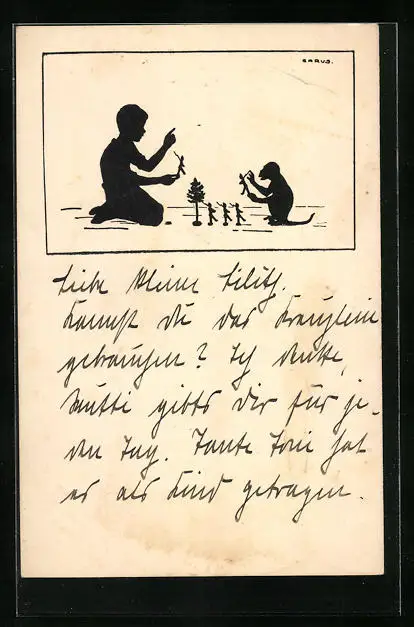 CARUS.
Liebe kleine Lilith.
Kannst du das Kreuzlein
gebrauchen? Ich denke,
Mutti gibts dir für je-
den Tag. Tante Toni hat
es als Kind getragen.